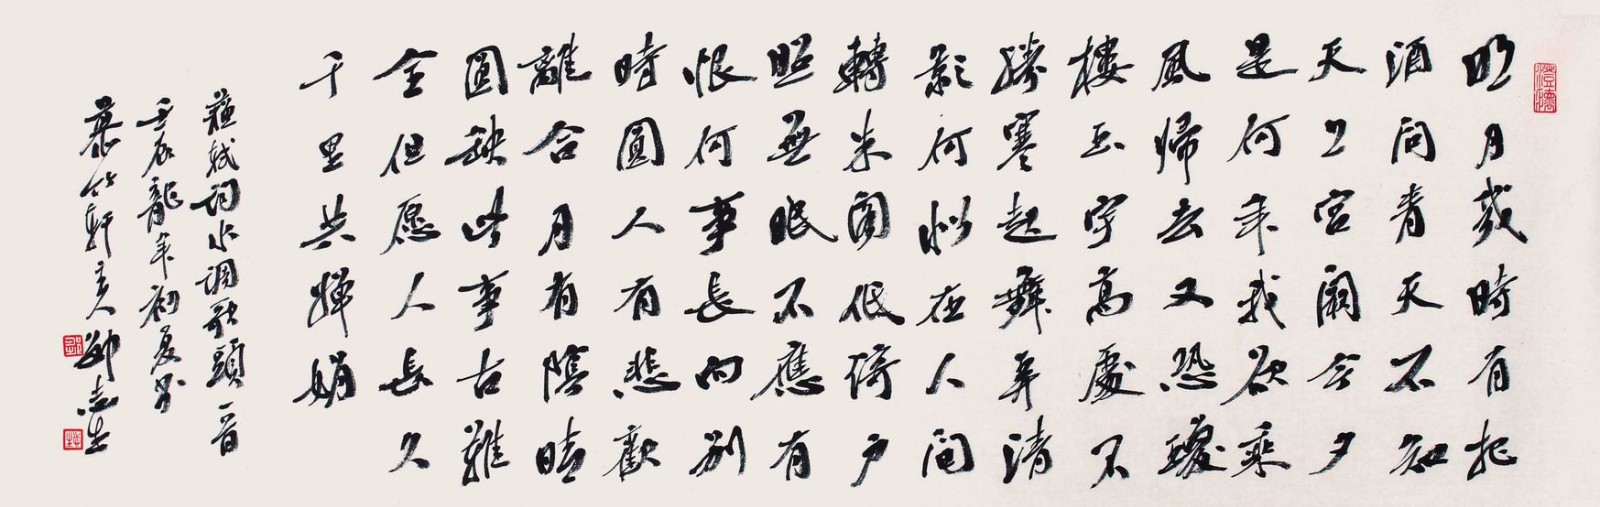 澄懷
明月幾時有把
酒問青天不知
天上宮闕今夕
是何年我欲乘
風歸去又恐瓊
樓玉宇高處不
勝寒起舞弄清
影何似在人間
轉朱閣低倚戶
照無眠不應有
恨何事長向別
時圓人有悲歡
離合月有陰晴
圓缺此事古難
全但愿人長久
千里共嬋娟
蘇軾詞水調歌頭一首
壬辰龍年初夏於
慕竹軒主人